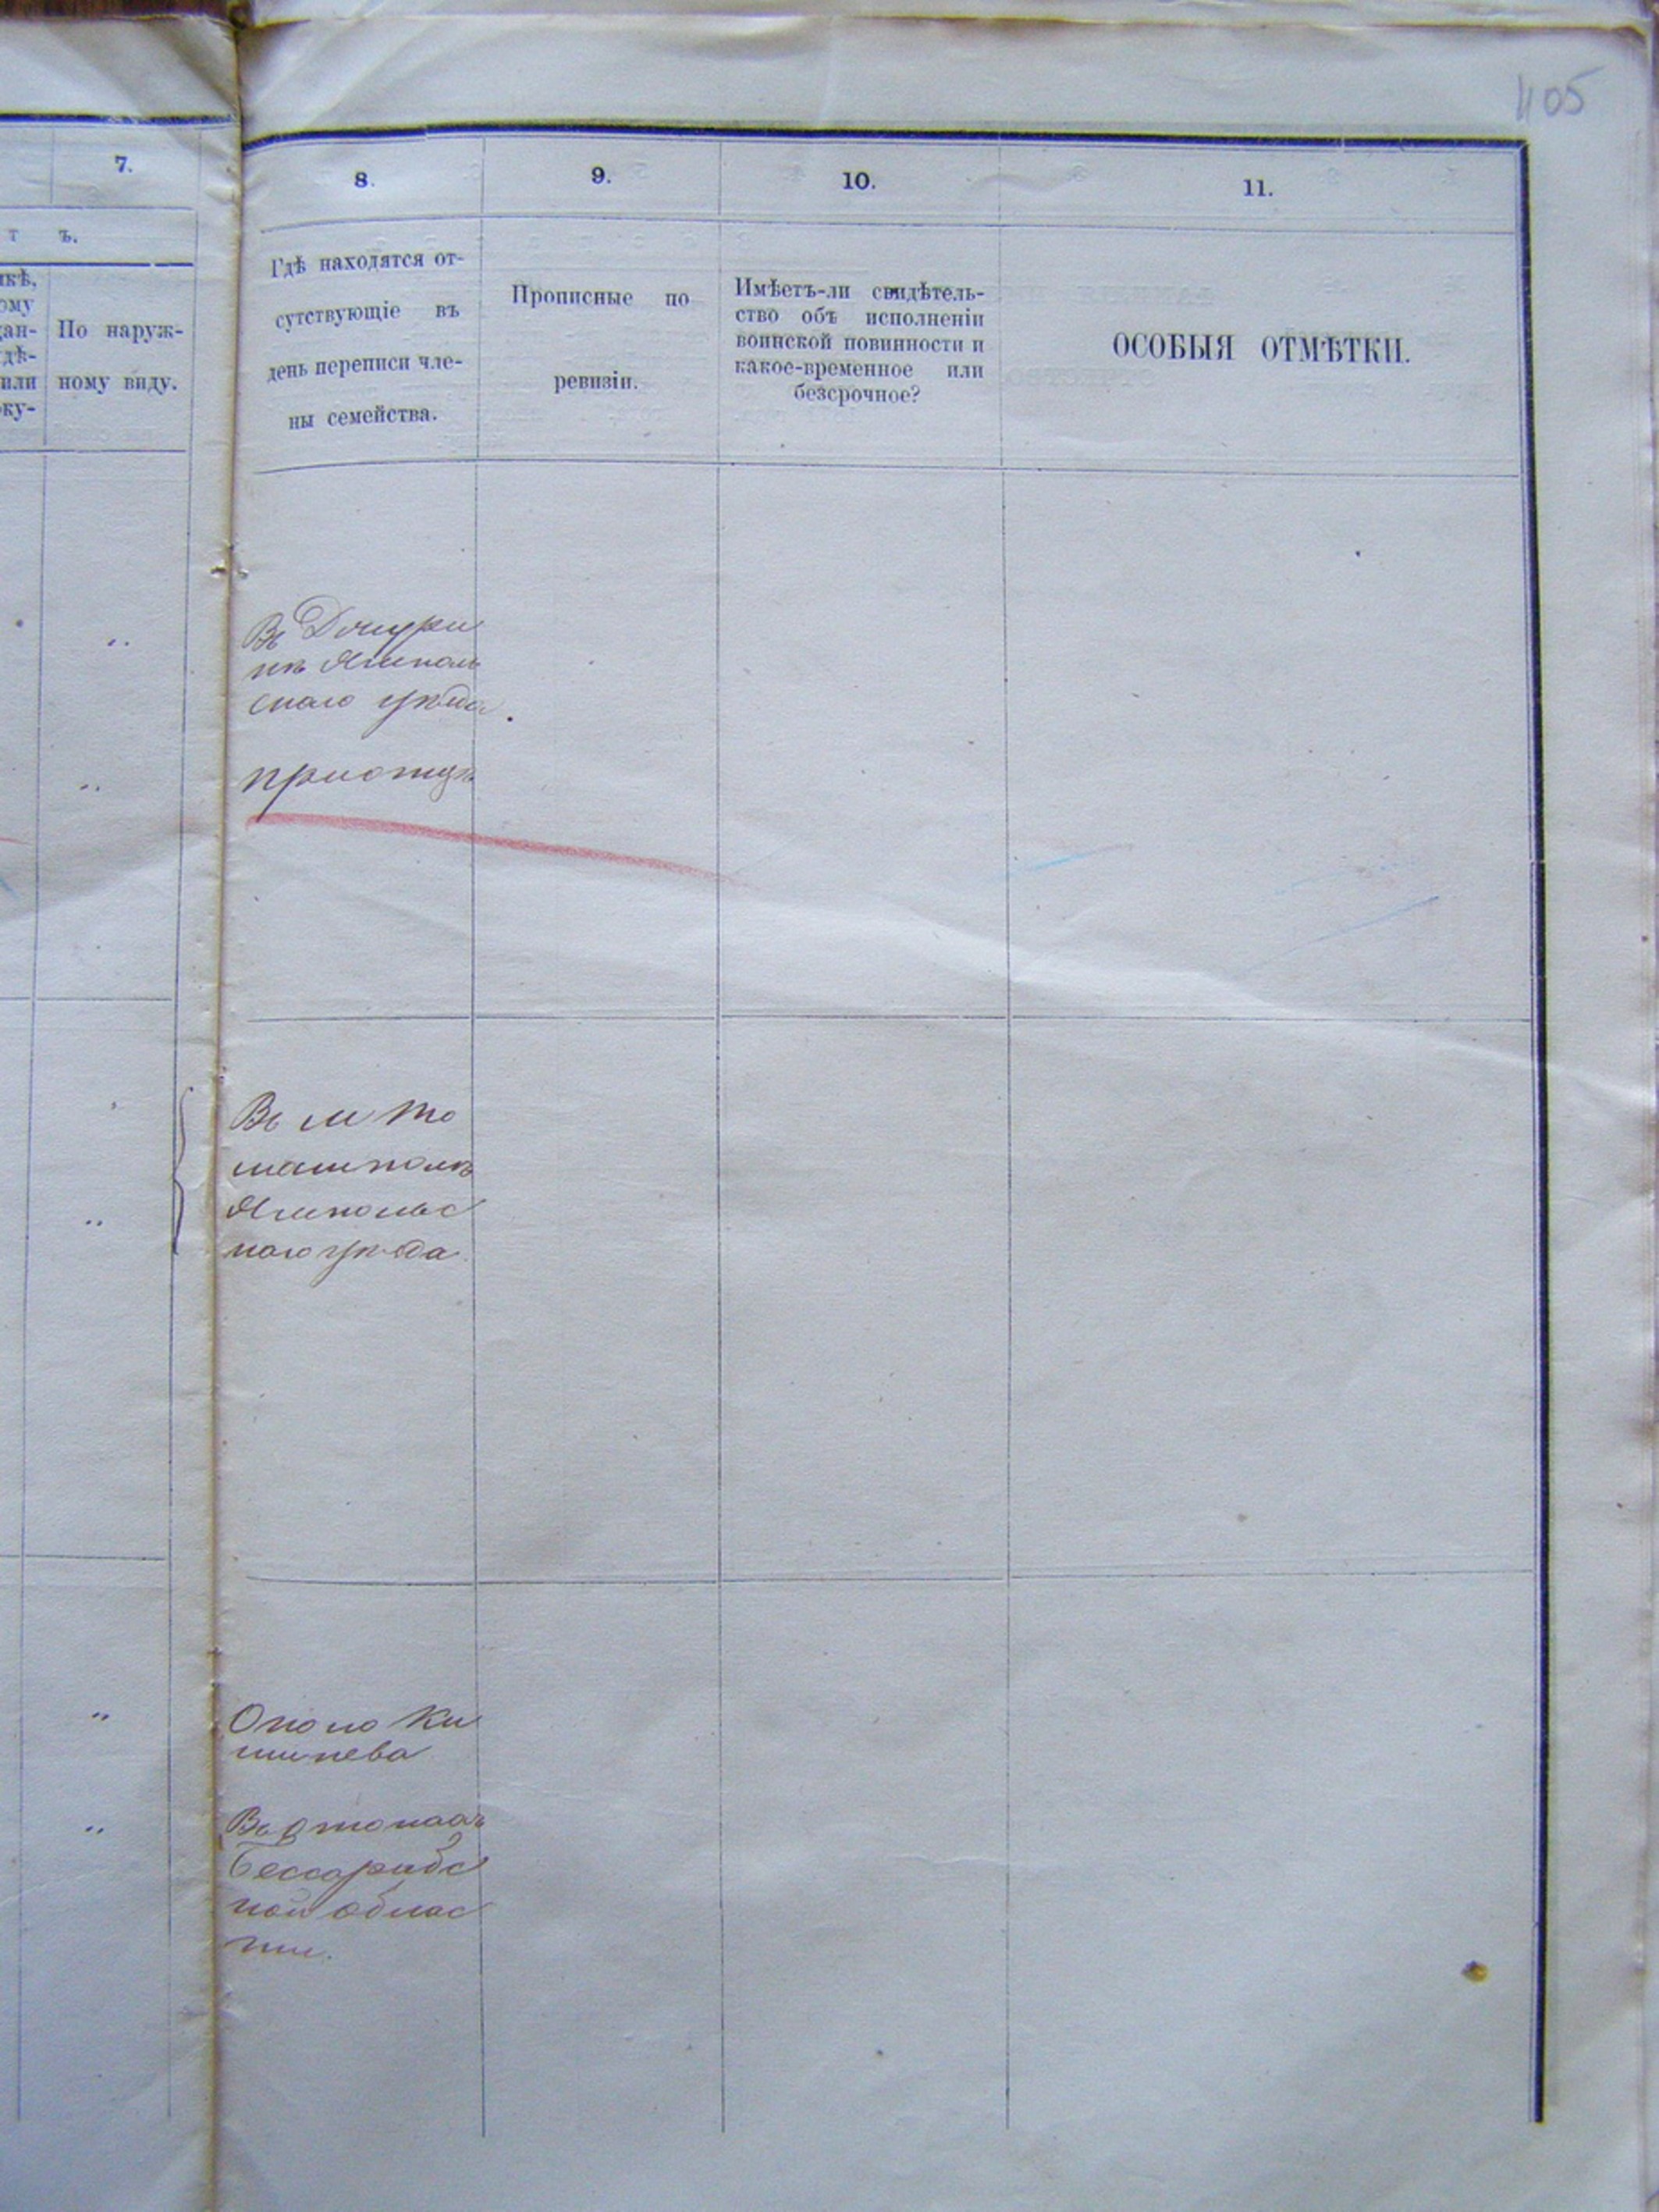 405
7.
8.
9.
10.
11.
т ъ.
икѣ,
ому
дан-
дѣ-
или
оку-
По наруж-
ному виду.
Гдѣ находятся от-
сутствующіе въ
день переписи чле-
ны семейства.
Прописные по
ревизіи.
Имѣетъ-ли свидѣтель-
ство объ исполненіи
воинской повинности и
какое-временное или
безсрочное?
ОСОБЫЯ ОТМѢТКИ.
Въ
Ямполь
скаго уѣзда.
При отцѣ
Въ м То
машполѣ
Ямпольс
каго уѣзда.
Около Ки
шинева
Въ
Бессарабс
кой облас
ти.